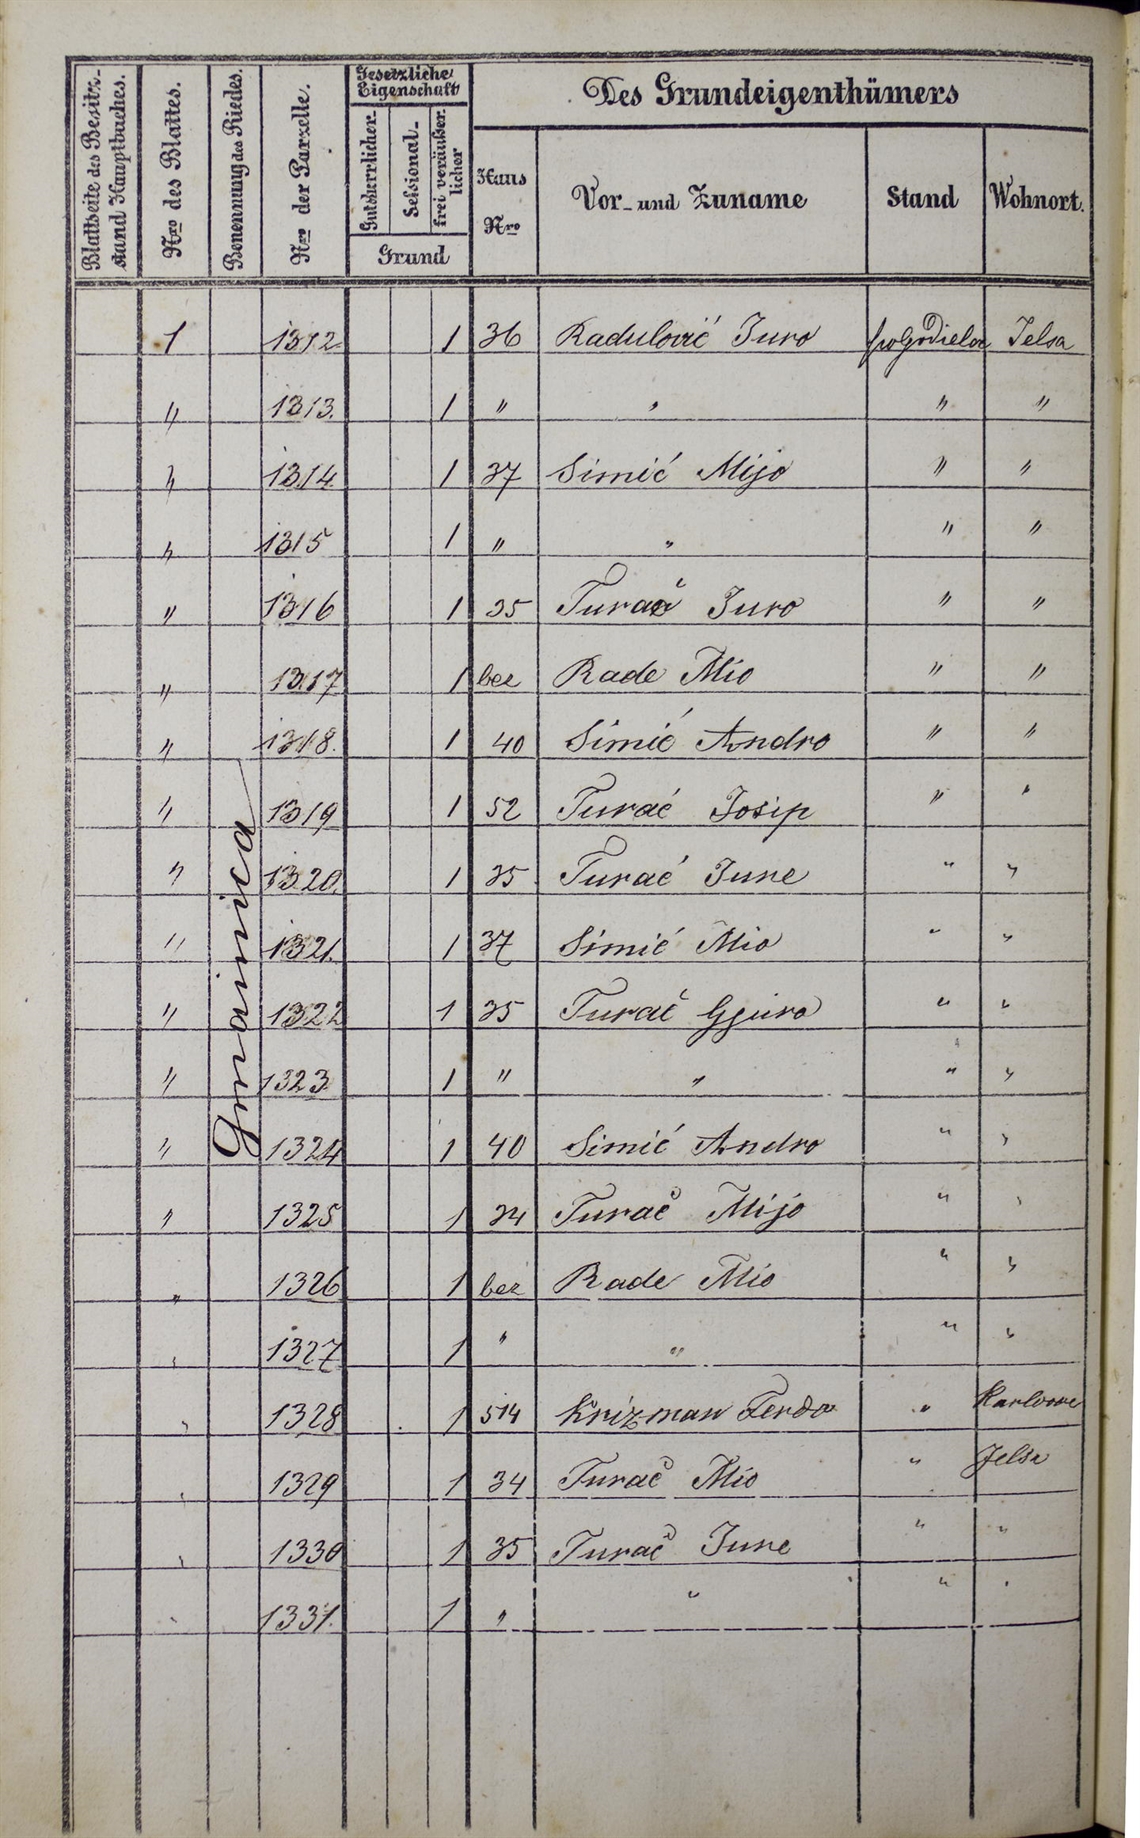 Blattseite des Besitz-stand Hauptbuches.
Nro des Blattes.
Benennung des Riedes.
Nro der Parzelle.
Gesetzliche Eigenschaft
Gutsherrlicher.
Sessional-
frei veräußerlicher
Grund
Des Grundeigenthümers
Haus Nro
Vor- und Zuname
Stand
Wohnort.
Gmainica
1 1312 1 36 Radulović Juro Jelsa
" 1313. 1 " " " "
" 1314 1 37 Simić Mijo " "
" 1315 1 " " " "
" 1316 1 35 Turač Juro " "
" 1317 1 bez Rade Mio " "
" 1318. 1 40 Simić Andro " "
" 1319 1 52 Turać Josip " "
" 1320 1 35 Turać June " "
" 1321. 1 37 Simić Mio " "
" 1322 1 35 Turać Gjuro " "
" 1323 1 " " " "
" 1324 1 40 Simić Andro " "
" 1325 1 34 Turač Mijo " "
" 1326 1 bez Rade Mio " "
" 1327 1 " " " "
" 1328 1 514 Krizman Ferdo " Karlovac
" 1329 1 34 Turač Mio " Jelsa
" 1330 1 35 Turač June " "
" 1331. 1 " " " "